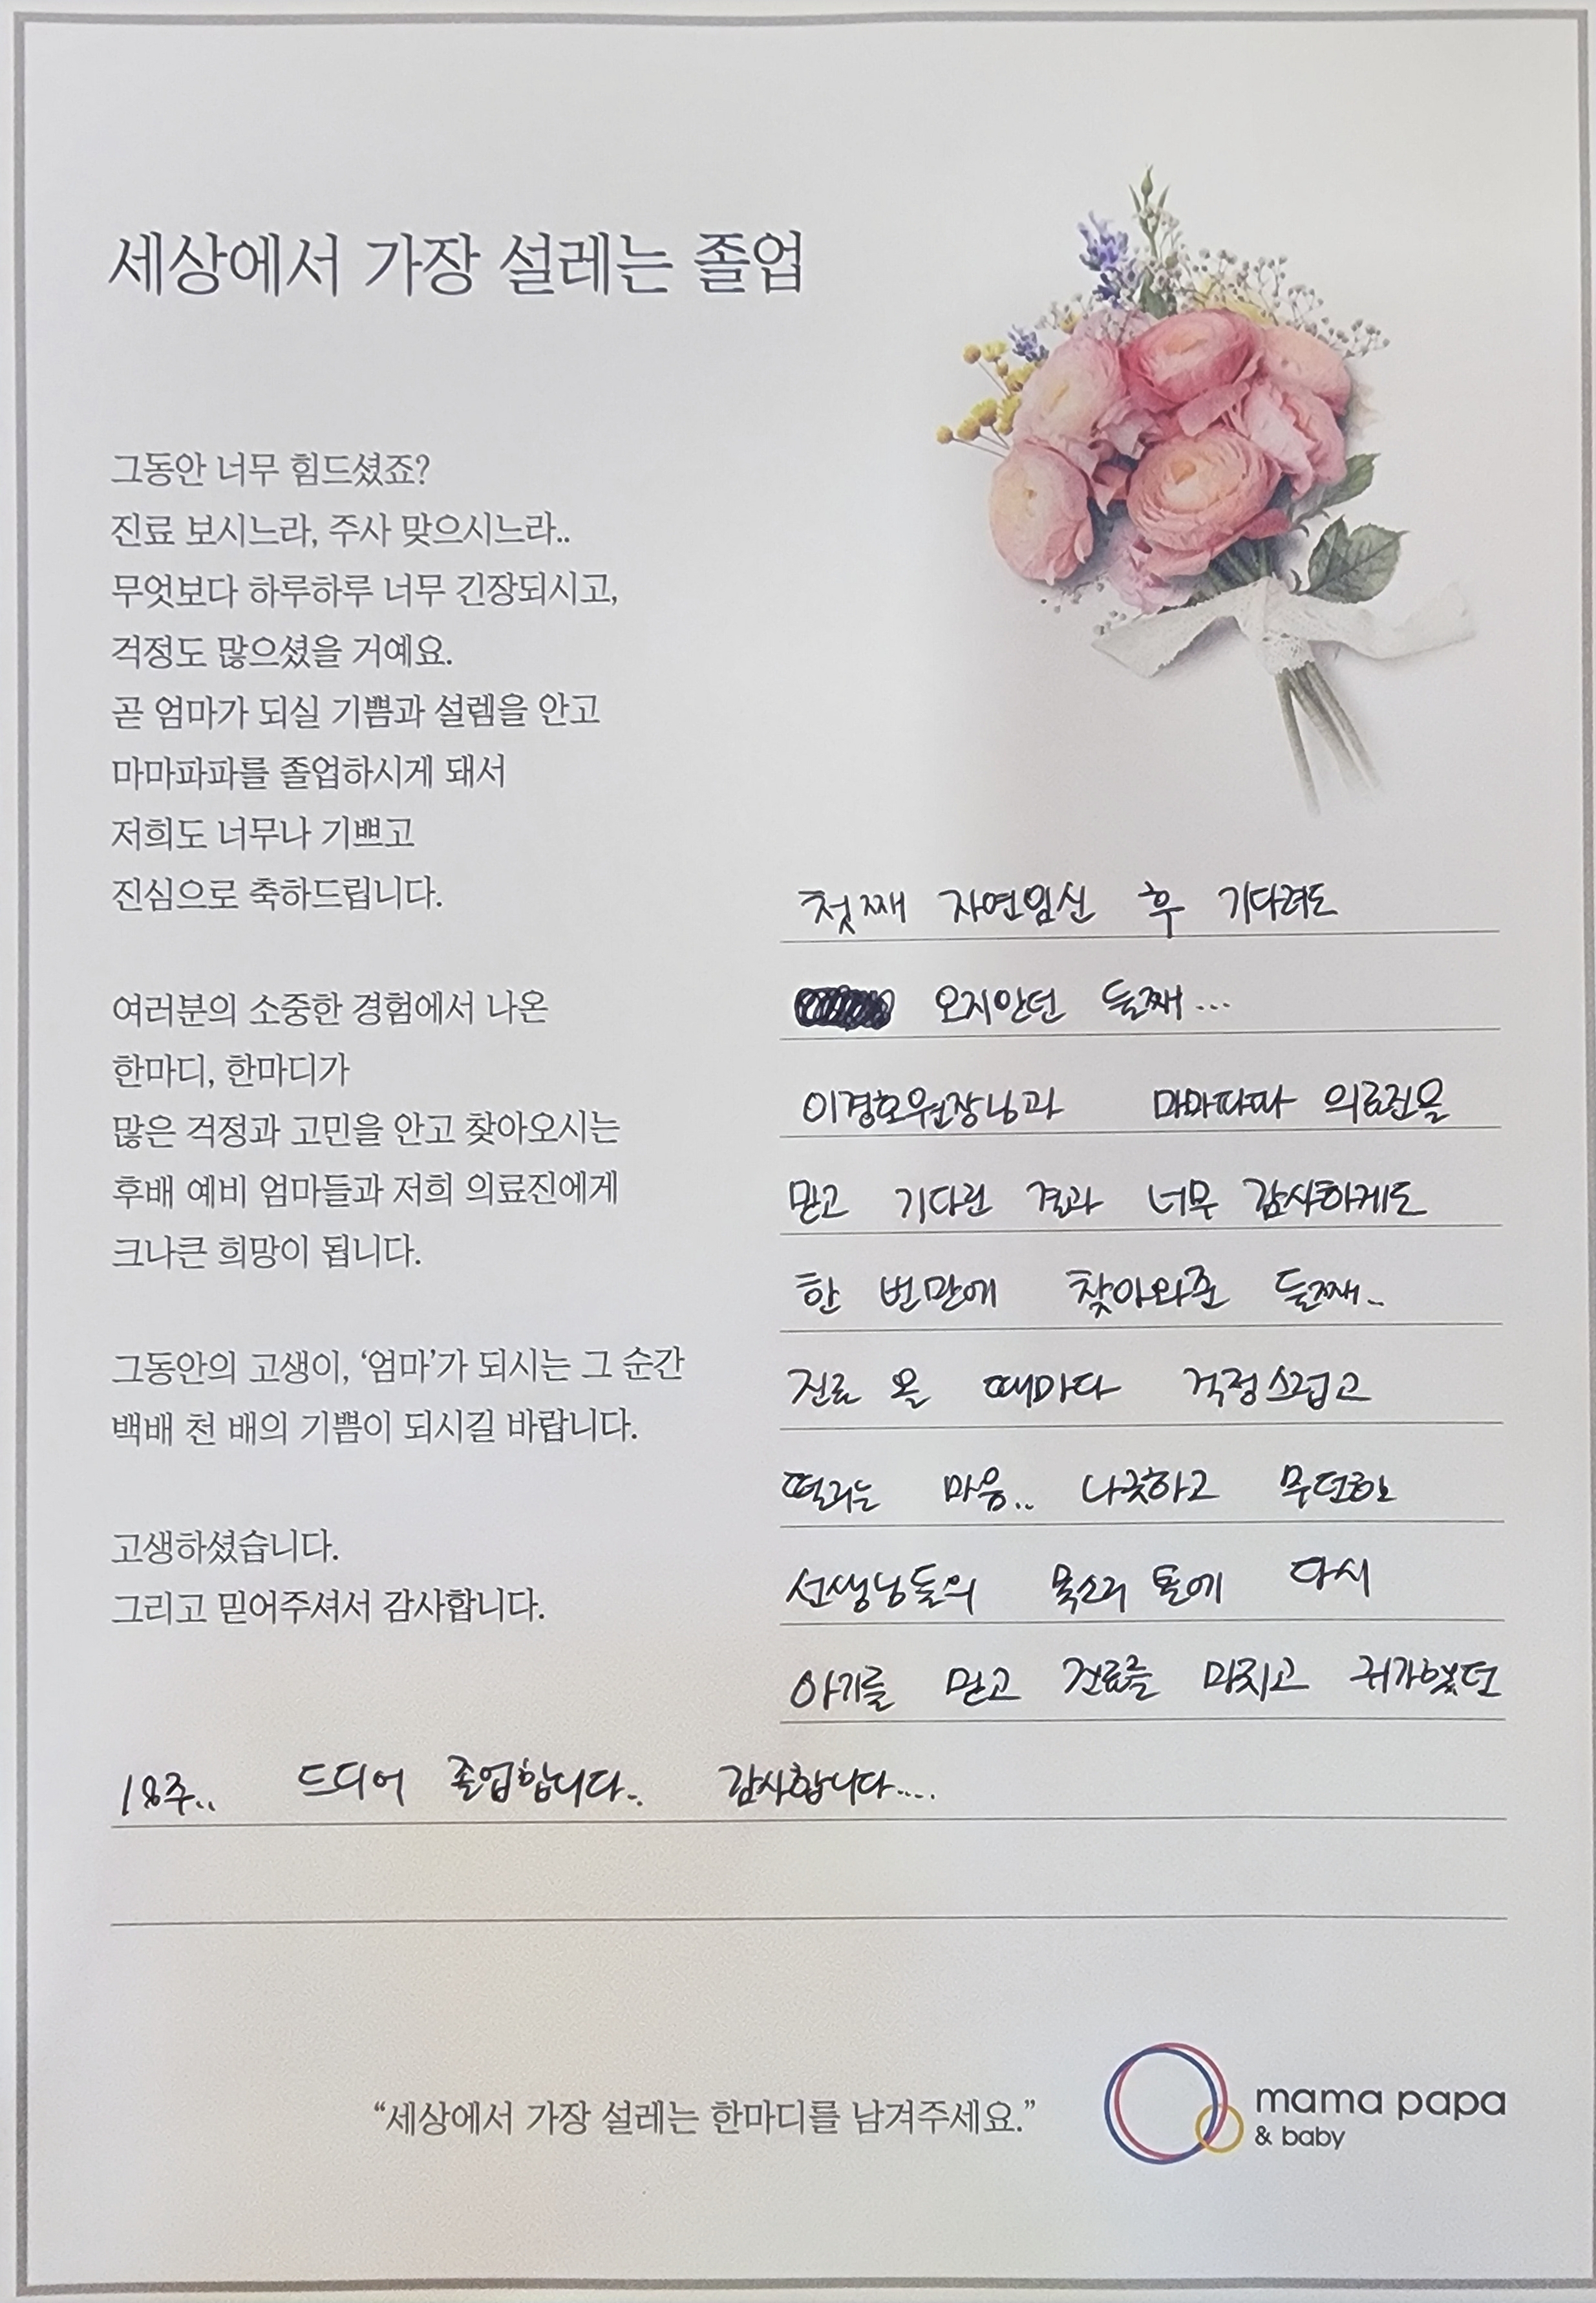 세상에서 가장 설레는 졸업
그동안 너무 힘드셨죠?
진료 보시느라, 주사 맞으시느라..
무엇보다 하루하루 너무 긴장되시고,
걱정도 많으셨을 거예요.
곧 엄마가 되실 기쁨과 설렘을 안고
마마파파를 졸업하시게 돼서
저희도 너무나 기쁘고
진심으로 축하드립니다.
여러분의 소중한 경험에서 나온
한마디, 한마디가
많은 걱정과 고민을 안고 찾아오시는
후배 예비 엄마들과 저희 의료진에게
크나큰 희망이 됩니다.
그동안의 고생이, ‘엄마’가 되시는 그 순간
백배 천 배의 기쁨이 되시길 바랍니다.
고생하셨습니다.
그리고 믿어주셔서 감사합니다.
첫째 자연임신 후 기다려도
오지안던 둘째...
이경호원장님과 마마파파 의료진을
믿고 기다린 결과 너무 감사하게도
한 번만에 찾아와준 둘째..
진료 올 때마다 걱정스럽고
떨리는 마음.. 나긋하고 무던한
선생님들의 목소리 톤에 다시
아기를 믿고 진료를 마치고 귀가했던
18주.. 드디어 졸업합니다.. 감사합니다....
“세상에서 가장 설레는 한마디를 남겨주세요.”
mama papa
& baby